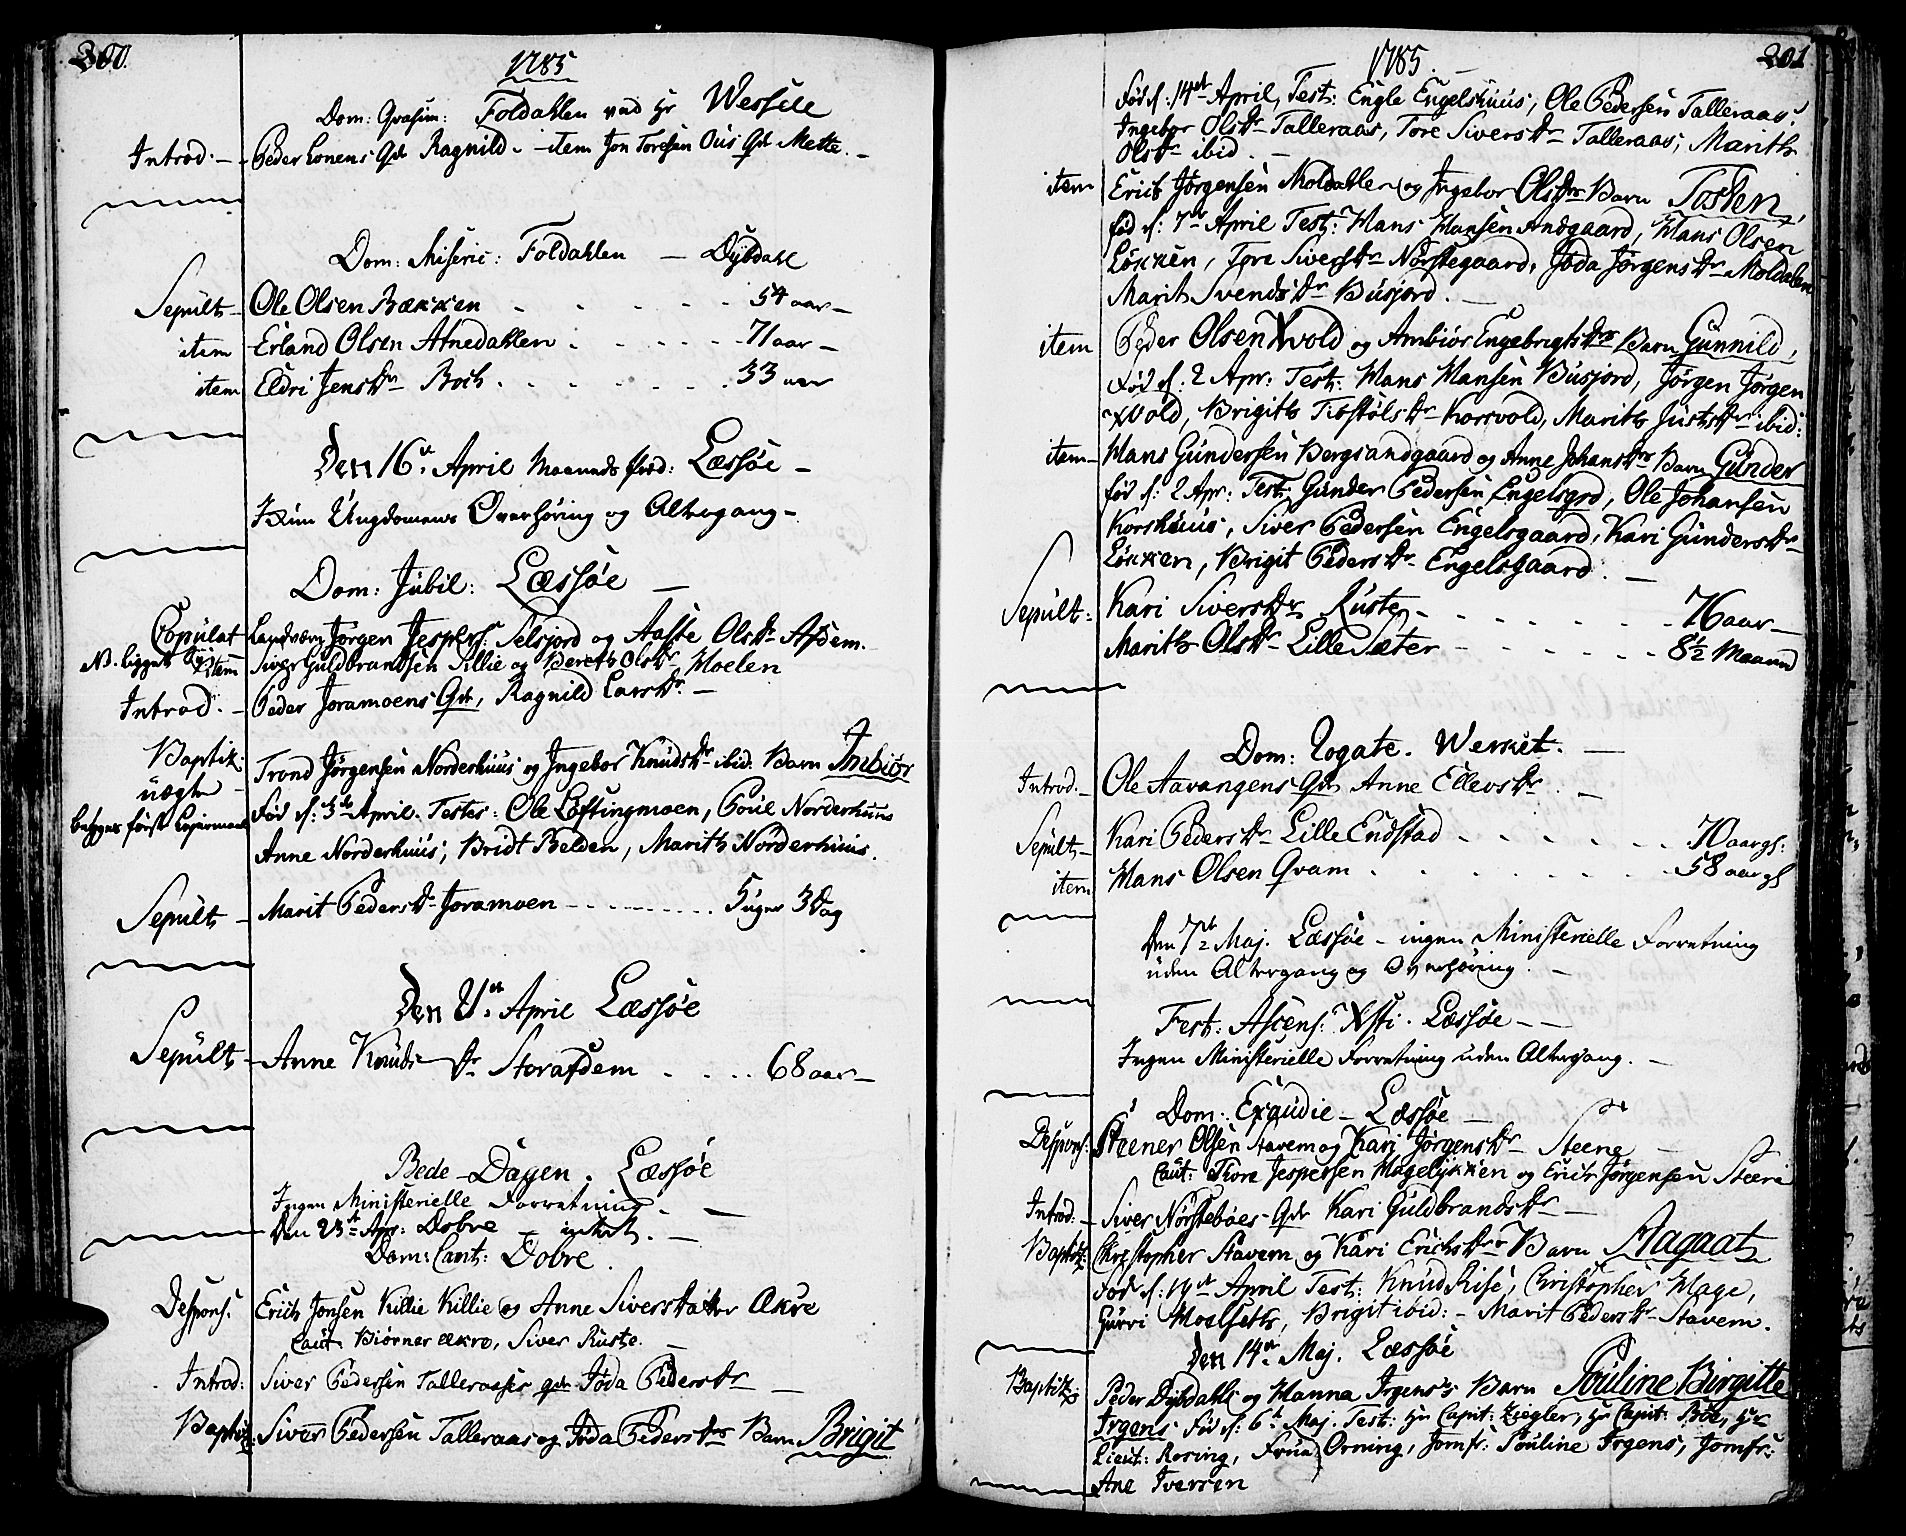 200.
1785
Dom: Qvasim: Foldahlen ved Hr Wessele
Introd: — Peder Lonens Qde Ragnild. — item Jon Toresen Ous Qde Mette. —
Dom: Miseric: Foldahlen — Dÿbdahl
Sepult — Ole Olsen Bækken 54 aar —
item Erland Olsen Atnedahlen 71 aar —
item Eldri Jensdr Boch 33 aar
Den 16de April Læssøe —
Ungdomens Overhøring og Altergang —
Dom: Jubil: Læssøe —
Copulat Landværn Jørgen Jespers. Selsjord og Aaste Olsdr Afdem.
Nb. ligget item Siver Guldbrandsen Killie og Bereth Olsdr Moelen
Introd. — Peder Joramoens Qde, Ragnild Larsdr —
Baptiz: uægte Trond Jørgensen Norderhuus og Ingebor Knudsdr ibid: Barn Imbiør
Fød d: 3de April. Testes: Ole Løftingmoen, Poul Norderhuus
begges først Leiermaal
Anne Norderhuus, Bridt Belden, Marith Norderhuus.
Sepult — Marit Pedersdr Joramoen 5 uger 3 Dag
Den 21de April Læssøe
Sepult — Anne Knudsdr Storafdem 68 aar —
Bede-Dagen. Læssøe
Ingen Ministerielle Forretning. —
Den 23de Apr: Dobre — intet. —
Dom: Cant: Dobre.
Despons: Erich Jonsen Killie Killie og Anne Siversdatter Økre
Caut. Biørner Økro, Siver Ruste. —
Introd: Siver Pedersen Talleraases Qde Joda Pedersdr —
Baptiz: Siver Pedersen Talleraas og Joda Pedersdrs Barn Brigit
201
1785. —
Fød d: 14de April, Test: Engle Engelshuus, Ole Pedersen Talleraas,
Ingebor Olsdr Talleraas, Tore Siversdr Talleraas, Marith
Olsdr ibid. —
item Erich Jørgensen Moldahlen og Ingebor Olsdrs Barn Tosten,
fød d: 7de April Test: Hans Hansen Andgaard, Hans Olsen
Løkken, Tore Siversdr Norstegaard, Joda Jørgensdr Moldalen
Marith Svendsdr Busjord. —
item Peder Olsen Wold og Ambiør Engebrigtsdrs Barn Gunnild,
Fød d: 2 Apr: Test: Hans Hansen Busjord, Jørgen Jørgen
Wold, Brigith Torstølsdr Korsvold, Marith Justsdr ibid:
item — Hans Gundersen Bergsandgaard og Anne Johansdrs Barn Gunder
fød d: 2 Apr: Test: Gunder Pedersen Engelsgrd, Ole Johansen
Korshuus, Siver Pedersen Engelsgaard, Kari Gundersdr
Løkken, Brigit Pedersdr Engelsgaard. —
Sepult: Kari Siversdr Ruste 76 aar —
Marith Olsdr Lille Sæter 8½ Maaned
Dom: Rogate. Werket. —
Introd. — Ole Aavangens Qde Anne Ellevsdr. —
Sepult — Kari Pedersdr Lille Endstad 70 aar gl:
item Hans Olsen Qvam 58 aar gl
Den 7de Maj. Læssøe — ingen Ministerielle Forretning
uden Altergang og Overhøring. —
Fest: Ascens: Xsti. Læssøe —
Ingen Ministerielle Forretning uden Altergang. —
Dom: Exaudie — Læssøe —
Despons: Steener Olsen Stavem og Kari Jørgensdr Steene —
Caut: Thore Jespersen Hagelykken og Erich Jørgensen Steene
Introd: — Siver Norstebøes Qde Kari Guldbrandsdr —
Baptiz: Christopher Stavem og Kari Erichsdrs Barn Aagaat
Fød d: 19de April Test: Knud Rise, Christopher Hage,
Gurri Moelsett, Brigit ibid: — Marit Pedersdr Stavem.
Den 14de Maj. Læssøe
Baptiz: Peder Dybdahls og Hanna Irgens's Barn Pouline Birgitte
Irgens Fød d: 6te Maj. Test: Hr Capit: Ziegler, Hr Capit: Bøe, Hr
Lieut: Rosing, Frue Orning, Jomfr: Pouline Irgens, Jomfr:
Ane Iversen